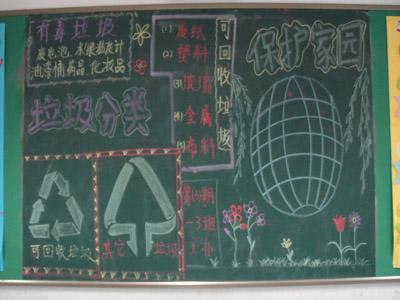 有毒垃圾
废电池、水银温度计
油漆桶、药品、化妆品
垃圾分类
可回收垃圾
(1) 废纸
(2) 塑料
(3) 玻璃
(4) 金属
(5) 布料
保护家园
可回收垃圾
其它 垃圾